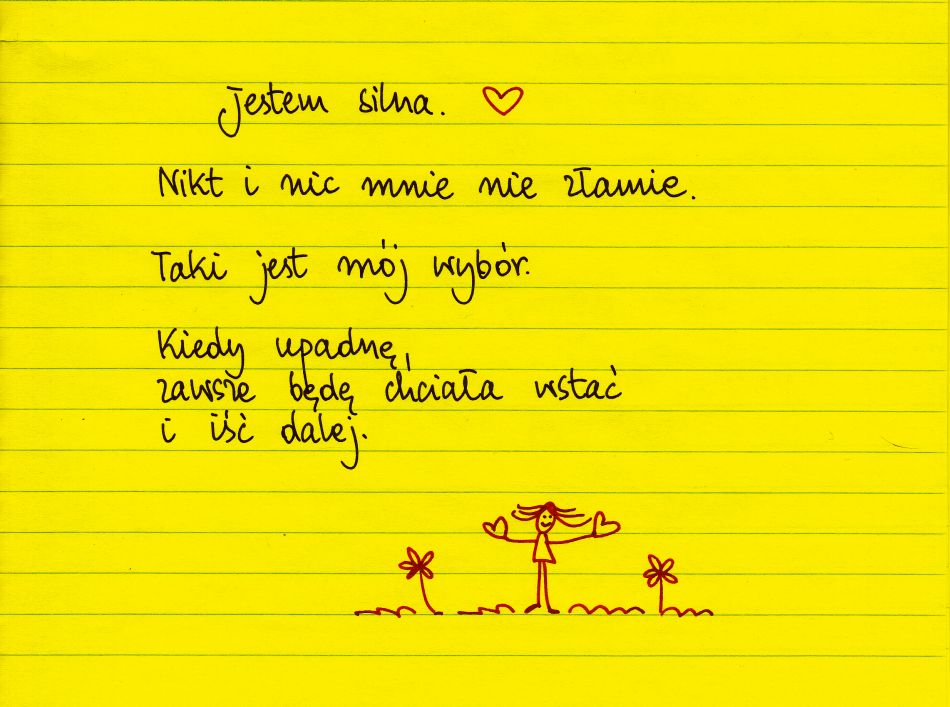 Jestem silna.
Nikt i nic mnie nie złamie.
Taki jest mój wybór.
Kiedy upadnę,
zawsze będę chciała wstać
i iść dalej.